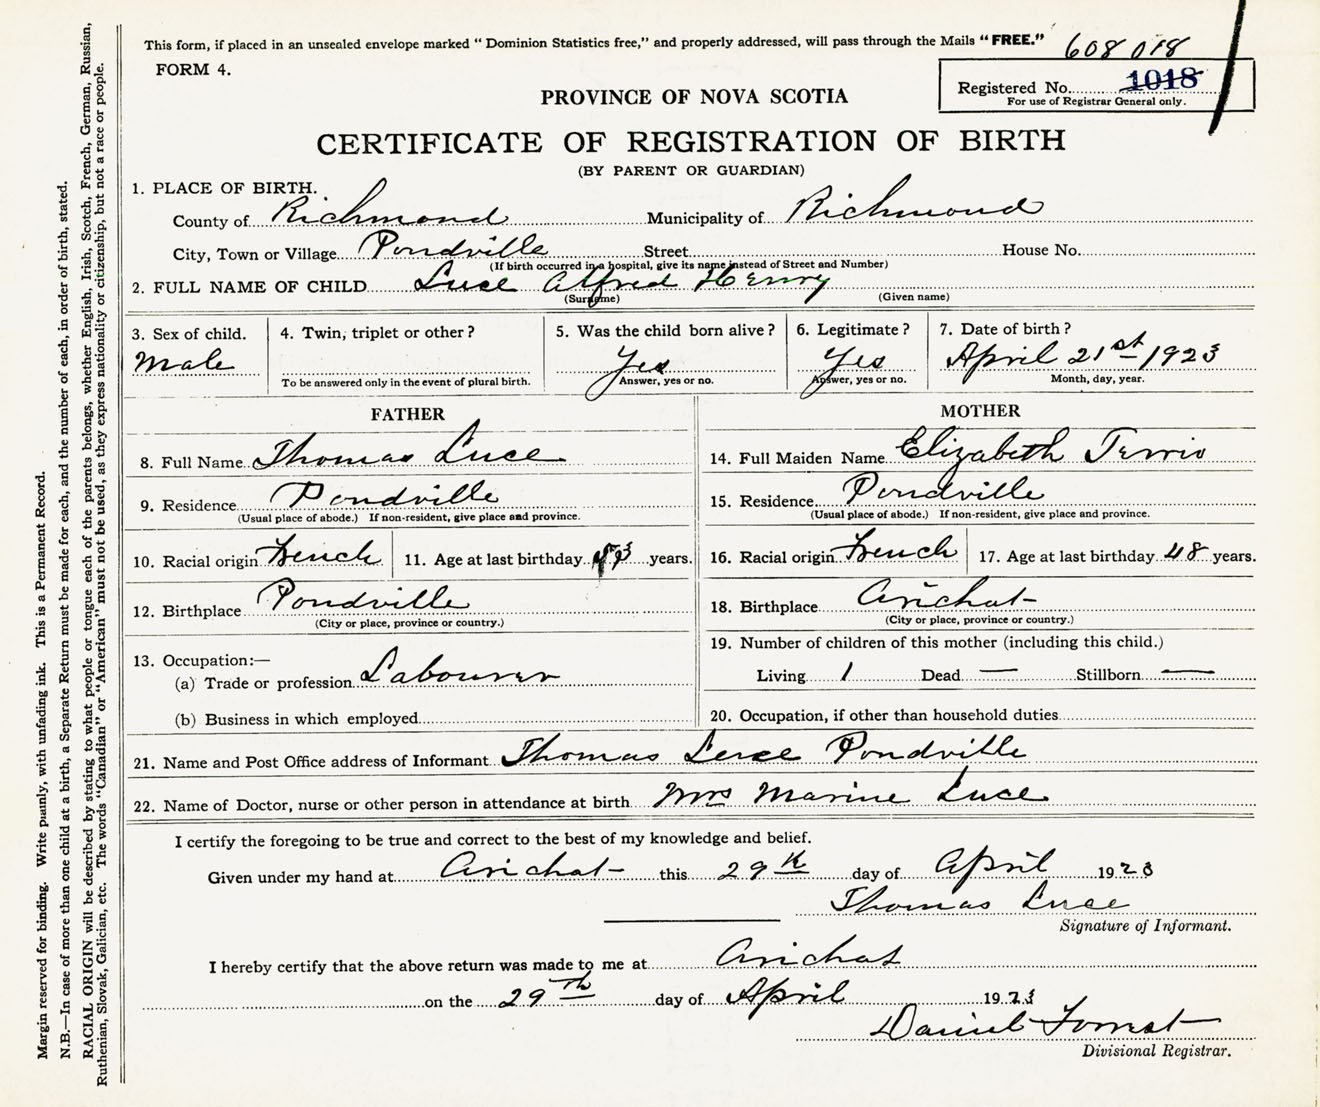 This form, if placed in an unsealed envelope marked "Dominion Statistics free," and properly addressed, will pass through the Mails "FREE."
608 018
FORM 4.
Registered No. 1018
For use of Registrar General only.
PROVINCE OF NOVA SCOTIA
CERTIFICATE OF REGISTRATION OF BIRTH
(BY PARENT OR GUARDIAN)
1. PLACE OF BIRTH.
County of Richmond Municipality of Richmond
City, Town or Village Pondville Street House No.
(If birth occurred in a hospital, give its name instead of Street and Number)
2. FULL NAME OF CHILD Luce Alfred Henry
(Surname) (Given name)
3. Sex of child. 4. Twin, triplet or other? 5. Was the child born alive? 6. Legitimate? 7. Date of birth?
Male Yes Yes April 21st 1923
To be answered only in the event of plural birth. Answer, yes or no. Answer, yes or no. Month, day, year.
FATHER MOTHER
8. Full Name Thomas Luce 14. Full Maiden Name Elizabeth Terrio
9. Residence Pondville 15. Residence Pondville
(Usual place of abode.) If non-resident, give place and province. (Usual place of abode.) If non-resident, give place and province.
10. Racial origin French 11. Age at last birthday years. 16. Racial origin French 17. Age at last birthday 48 years.
12. Birthplace Pondville 18. Birthplace Arichat
(City or place, province or country.) (City or place, province or country.)
19. Number of children of this mother (including this child.)
13. Occupation:—
(a) Trade or profession Labourer Living 1 Dead — Stillborn —
(b) Business in which employed 20. Occupation, if other than household duties
21. Name and Post Office address of Informant Thomas Luce Pondville
22. Name of Doctor, nurse or other person in attendance at birth Mrs Marine Luce
I certify the foregoing to be true and correct to the best of my knowledge and belief.
Given under my hand at Arichat this 29th day of April 1923
Thomas Luce
Signature of Informant.
I hereby certify that the above return was made to me at Arichat
on the 29Th day of April 1923
Daniel Forrest
Divisional Registrar.
Margin reserved for binding. Write plainly, with unfading ink. This is a Permanent Record.
N.B.—In case of more than one child at a birth, a Separate Return must be made for each, and the number of each, in order of birth, stated.
RACIAL ORIGIN will be described by stating to what people or tongue each of the parents belongs, whether English, Irish, Scotch, French, German, Russian,
Ruthenian, Slovak, Galician, etc. The words "Canadian" or "American" must not be used, as they express nationality or citizenship, but not a race or people.